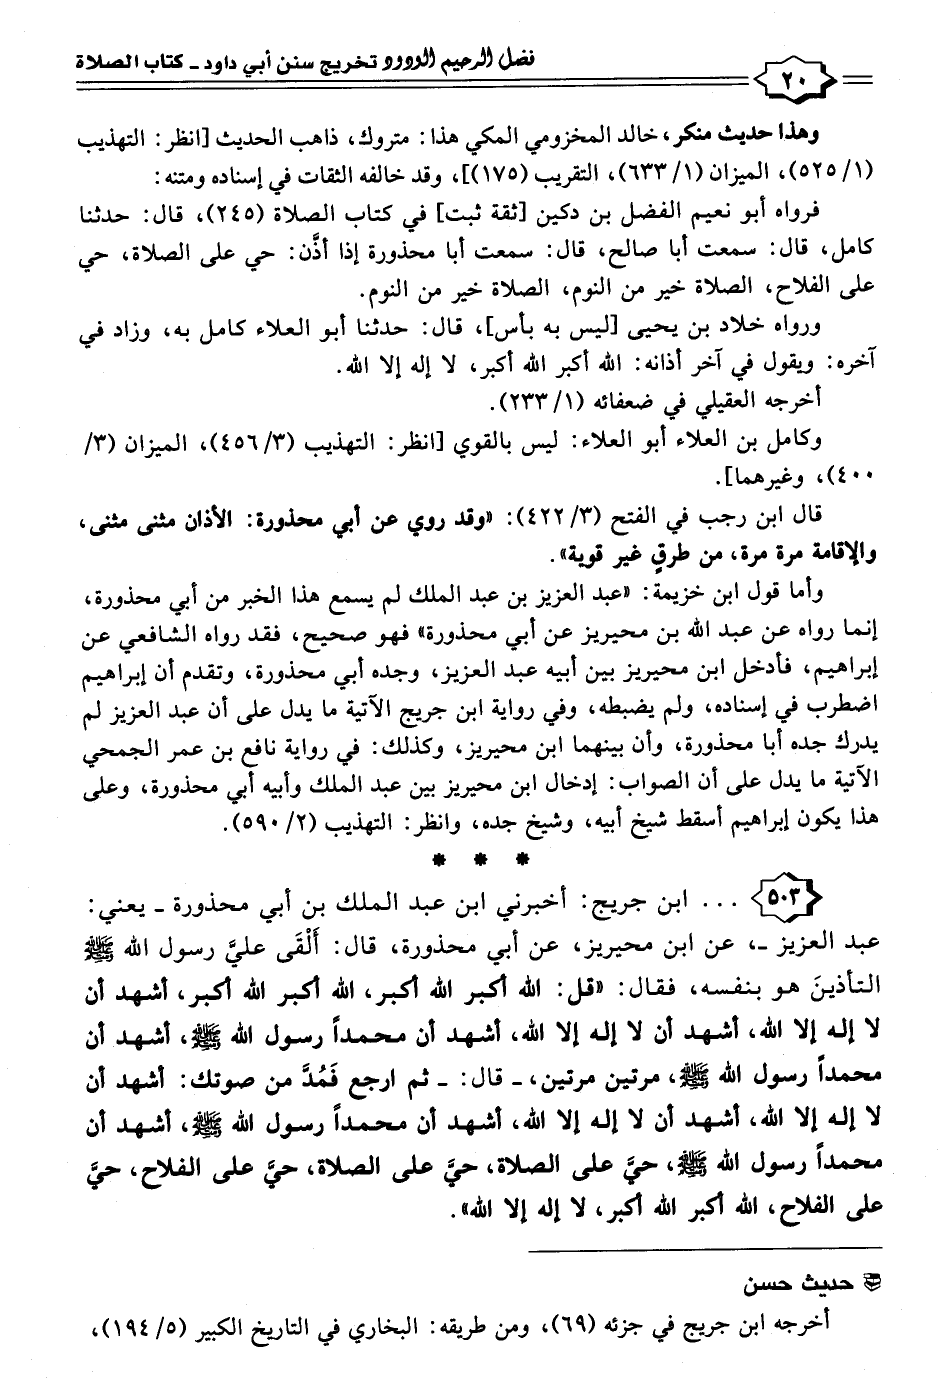 ٢٠ فضل الرحيم الودود تخريج سنن أبي داود ـ كتاب الصلاة
وهذا حديث منكر، خالد المخزومي المكي هذا: متروك، ذاهب الحديث [انظر: التهذيب
(١/ ٥٢٥)، الميزان (١/ ٦٣٣)، التقريب (١٧٥)]، وقد خالفه الثقات في إسناده ومتنه:
فرواه أبو نعيم الفضل بن دكين [ثقة ثبت] في كتاب الصلاة (٢٤٥)، قال: حدثنا
كامل، قال: سمعت أبا صالح، قال: سمعت أبا محذورة إذا أذَّن: حي على الصلاة، حي
على الفلاح، الصلاة خير من النوم، الصلاة خير من النوم.
ورواه خلاد بن يحيى [ليس به بأس]، قال: حدثنا أبو العلاء كامل به، وزاد في
آخره: ويقول في آخر أذانه: الله أكبر الله أكبر، لا إله إلا الله.
أخرجه العقيلي في ضعفائه (١/ ٢٣٣).
وكامل بن العلاء أبو العلاء: ليس بالقوي [انظر: التهذيب (٣/ ٤٥٦)، الميزان (٣/
٤٠٠)، وغيرهما].
قال ابن رجب في الفتح (٣/ ٤٢٢): «وقد روي عن أبي محذورة: الأذان مثنى مثنى،
والإقامة مرة مرة، من طرقٍ غير قوية».
وأما قول ابن خزيمة: «عبد العزيز بن عبد الملك لم يسمع هذا الخبر من أبي محذورة،
إنما رواه عن عبد الله بن محيريز عن أبي محذورة» فهو صحيح، فقد رواه الشافعي عن
إبراهيم، فأدخل ابن محيريز بين أبيه عبد العزيز، وجده أبي محذورة، وتقدم أن إبراهيم
اضطرب في إسناده، ولم يضبطه، وفي رواية ابن جريج الآتية ما يدل على أن عبد العزيز لم
يدرك جده أبا محذورة، وأن بينهما ابن محيريز، وكذلك: في رواية نافع بن عمر الجمحي
الآتية ما يدل على أن الصواب: إدخال ابن محيريز بين عبد الملك وأبيه أبي محذورة، وعلى
هذا يكون إبراهيم أسقط شيخ أبيه، وشيخ جده، وانظر: التهذيب (٢/ ٥٩٠).
* * *
٥٠٣ ... ابن جريج: أخبرني ابن عبد الملك بن أبي محذورة ـ يعني:
عبد العزيز ـ، عن ابن محيريز، عن أبي محذورة، قال: أَلْقَى عليَّ رسول الله ﷺ
التأذينَ هو بنفسه، فقال: «قل: الله أكبر الله أكبر، الله أكبر الله أكبر، أشهد أن
لا إله إلا الله، أشهد أن لا إله إلا الله، أشهد أن محمداً رسول الله ﷺ، أشهد أن
محمداً رسول الله ﷺ، مرتين مرتين، ـ قال: ـ ثم ارجع فَمُدَّ من صوتك: أشهد أن
لا إله إلا الله، أشهد أن لا إله إلا الله، أشهد أن محمداً رسول الله ﷺ، أشهد أن
محمداً رسول الله ﷺ، حيَّ على الصلاة، حيَّ على الصلاة، حيَّ على الفلاح، حيَّ
على الفلاح، الله أكبر الله أكبر، لا إله إلا الله».
حديث حسن
أخرجه ابن جريج في جزئه (٦٩)، ومن طريقه: البخاري في التاريخ الكبير (٥/ ١٩٤)،